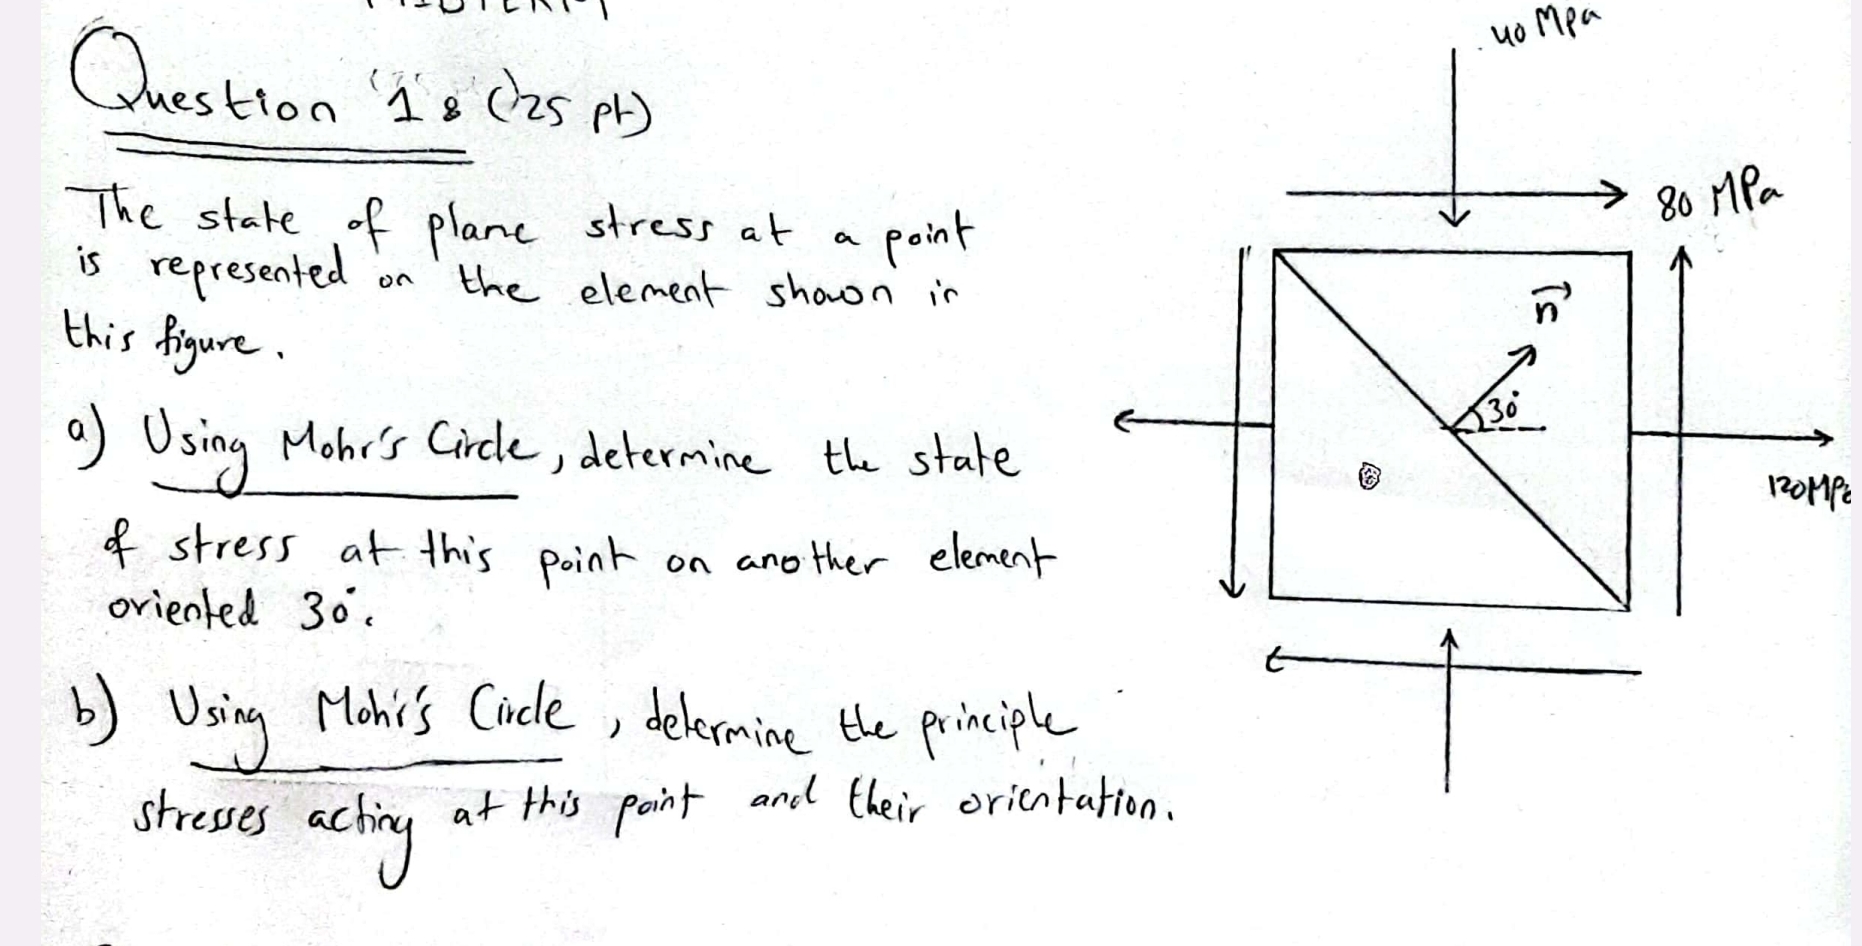 MIDTERM
Question 1 : (25 pt)
The state of plane stress at a point
is represented on the element shown in
this figure.
a) Using Mohr's Circle, determine the state
of stress at this point on another element
oriented 30°.
b) Using Mohr's Circle, determine the principle
stresses acting at this point and their orientation.
40 MPa
80 MPa
n
30°
120 MPa